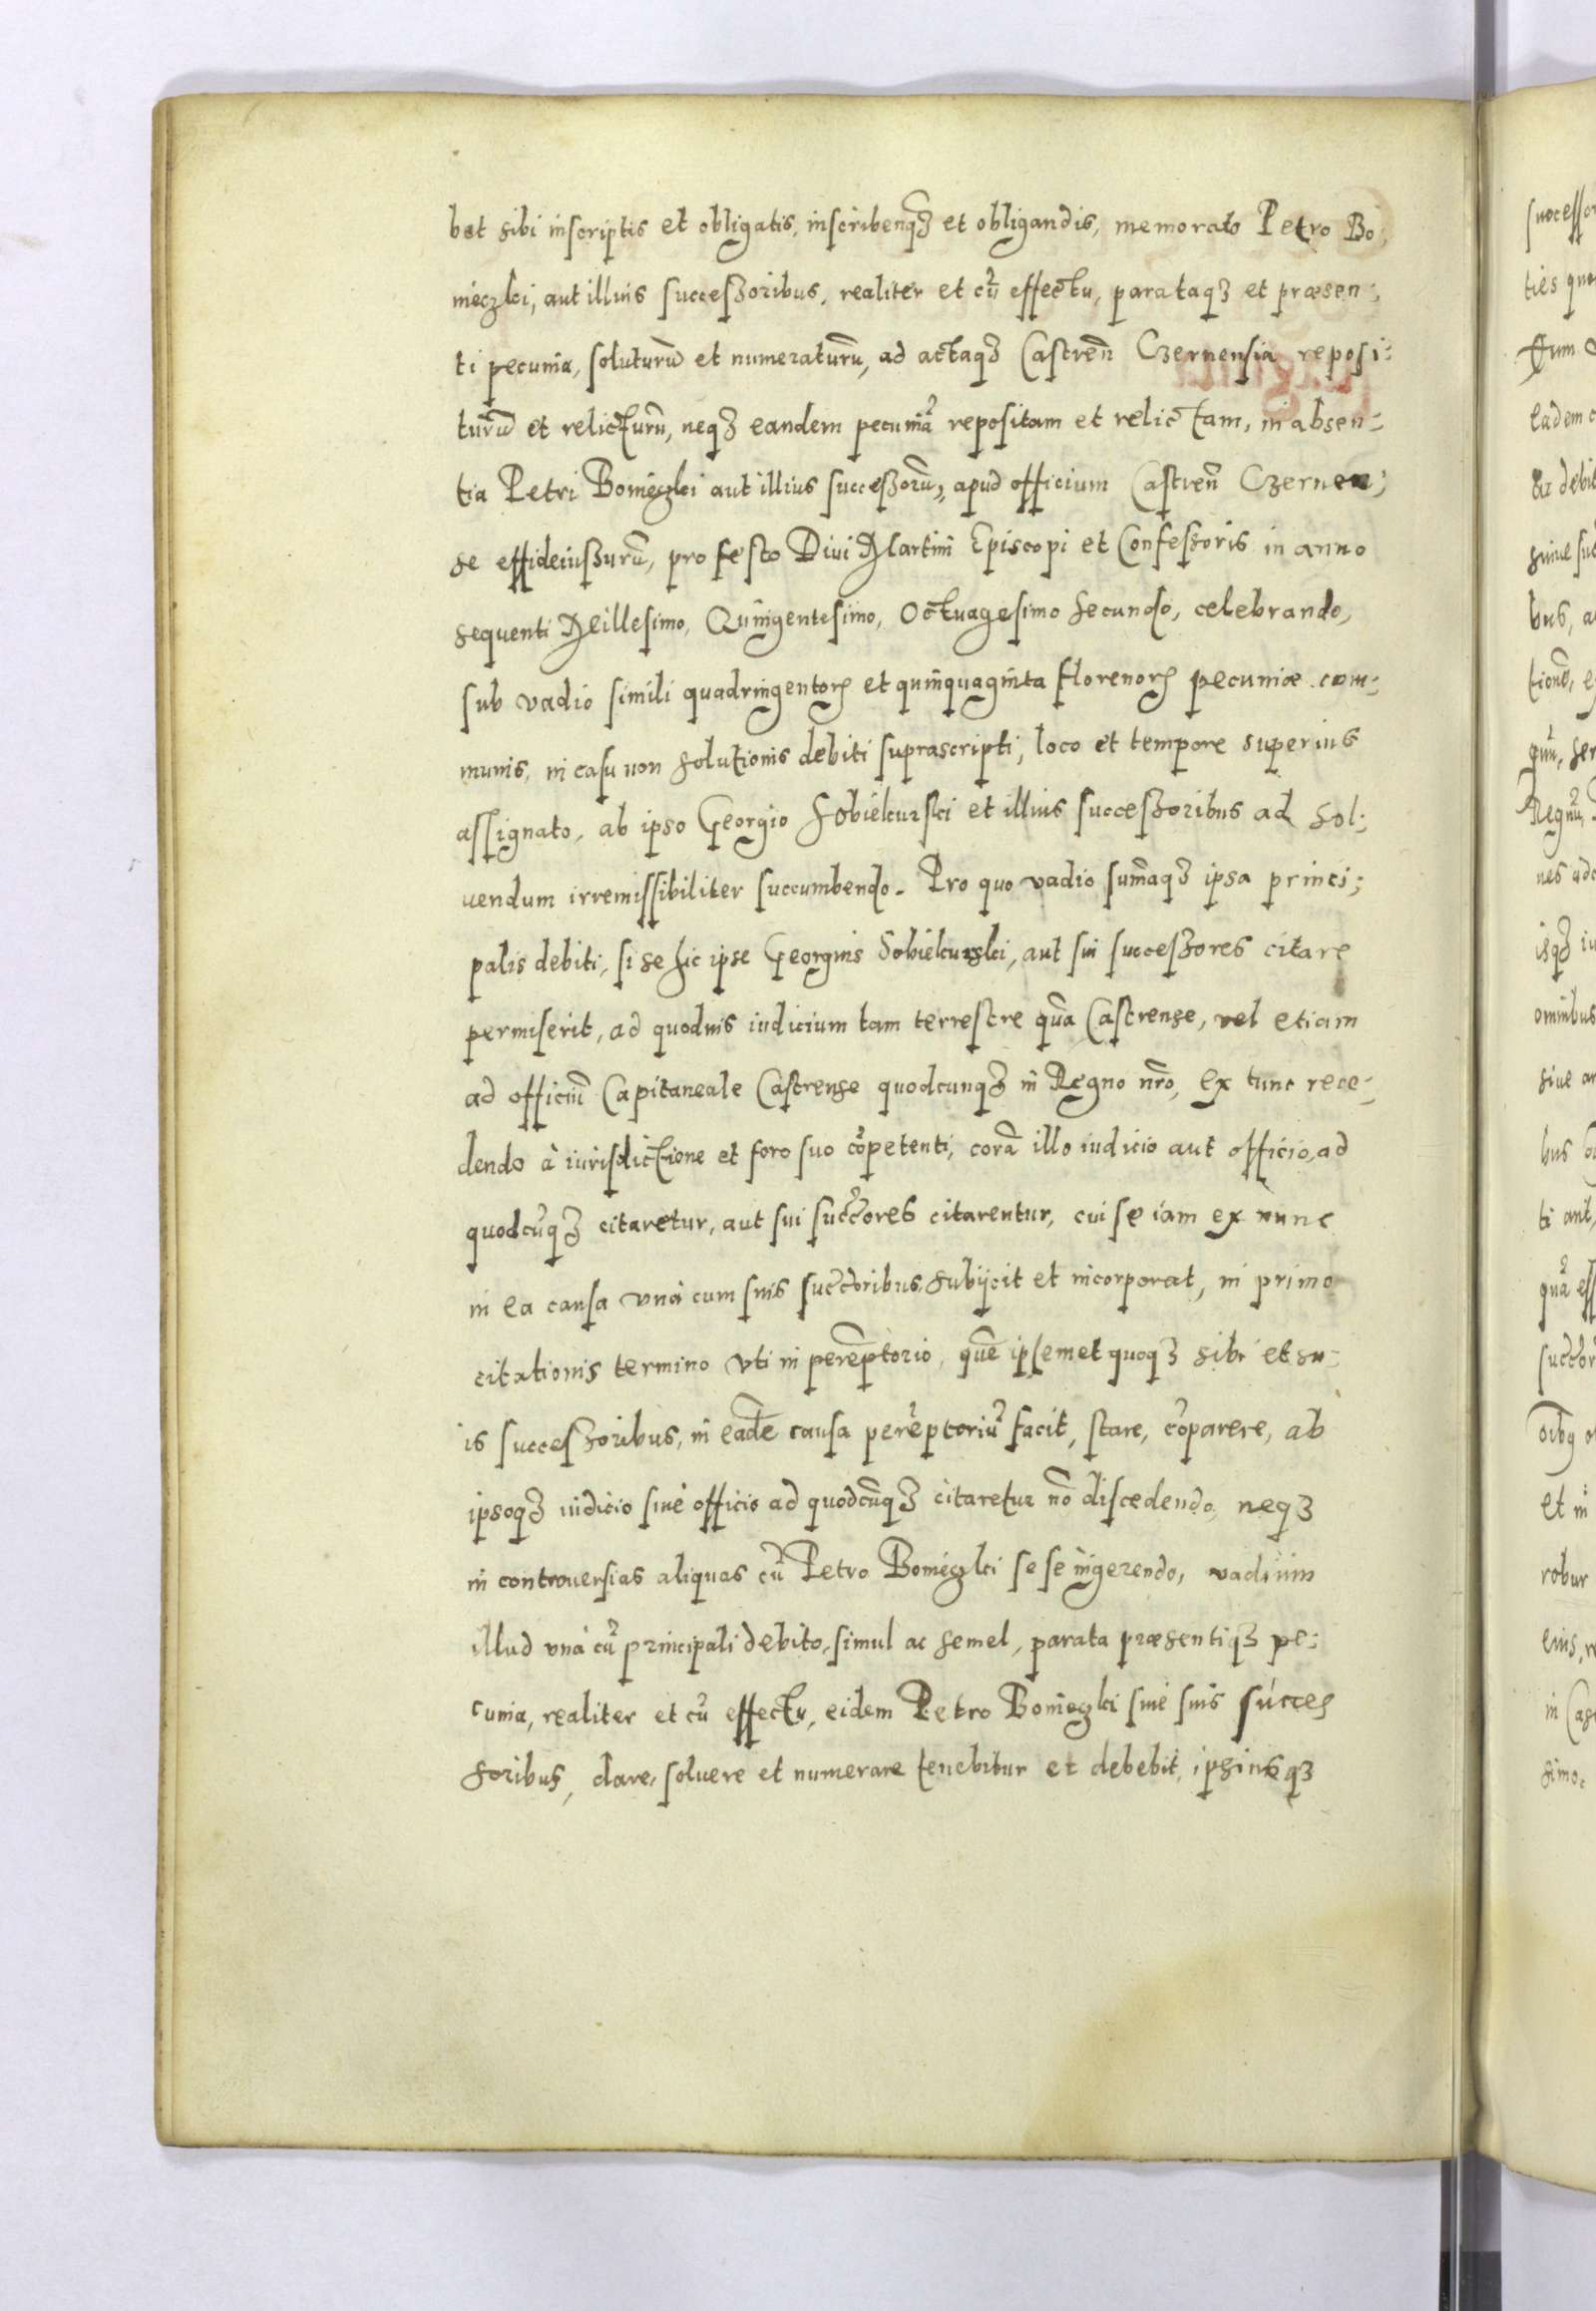 bet sibi inscriptis et obligatis, inscribenq́ȝ et obligandis, memorato Petro Bo;
nieczki, aut illius successoribus, realiter et cũ effectu, parataqȝ et præsen:
ti pecunia, soluturũ et numeraturũ, ad actaqȝ Castreñ Czernensia reposi:
turũ et relicturũ, neqȝ eandem pecuniã repositam et relictam, in absen:
tia Petri Bonieczki aut illius successorũ, apud officium Castreñ Czernen:
se effideiussurũ, pro festo Diui Martini Episcopi et Confessoris in anno
sequenti Millesimo, Quingentesimo, Octuagesimo secundo, celebrando,
sub vadio simili quadringentorꝝ et quinquaginta florenorꝝ pecuniæ com:
munis, in casu non solutionis debiti suprascripti, loco et tempore superius
assignato, ab ipso Georgio Sobiekurski et illius successoribus ad sol:
uendum irremissibiliter succumbendo. Pro quo vadio sum̃aqȝ ipsa princi;
palis debiti, si se hic ipse Georgius Sobiekurski, aut sui successores citare
permiserit, ad quoduis iudicium tam terrestre quã Castrense, vel etiam
ad officiũ Capitaneale Castrense quodcunqȝ in Regno nr̃o, ex tunc rece:
dendo à iurisdictione et foro suo cõpetenti, corã illo iudicio aut officio, ad
quodcũqȝ citaretur, aut sui succ̃ores citarentur, cui se iam ex nunc
in ea causa vnà cum suis succ̃oribus, subijcit et incorporat, in primo
citationis termino vti in perẽptorio, quẽ ipsemet quoqȝ sibi et su:
is successoribus, in eadẽ causa perẽptoriũ facit, stare, cõparere, ab
ipsoqȝ iudicio siue officio ad quodcũqȝ citaretur nõ discedendo, neqȝ
in controuersias aliquas cũ Petro Bonieczki se se ingerendo, vadium
illud vnà cũ principali debito, simul ac semel, parata præsentiqȝ pe:
cunia, realiter et cũ effectu, eidem Petro Bonieczki siue suis succes
soribus, dare, soluere et numerare tenebitur et debebit, ipsiusqȝ